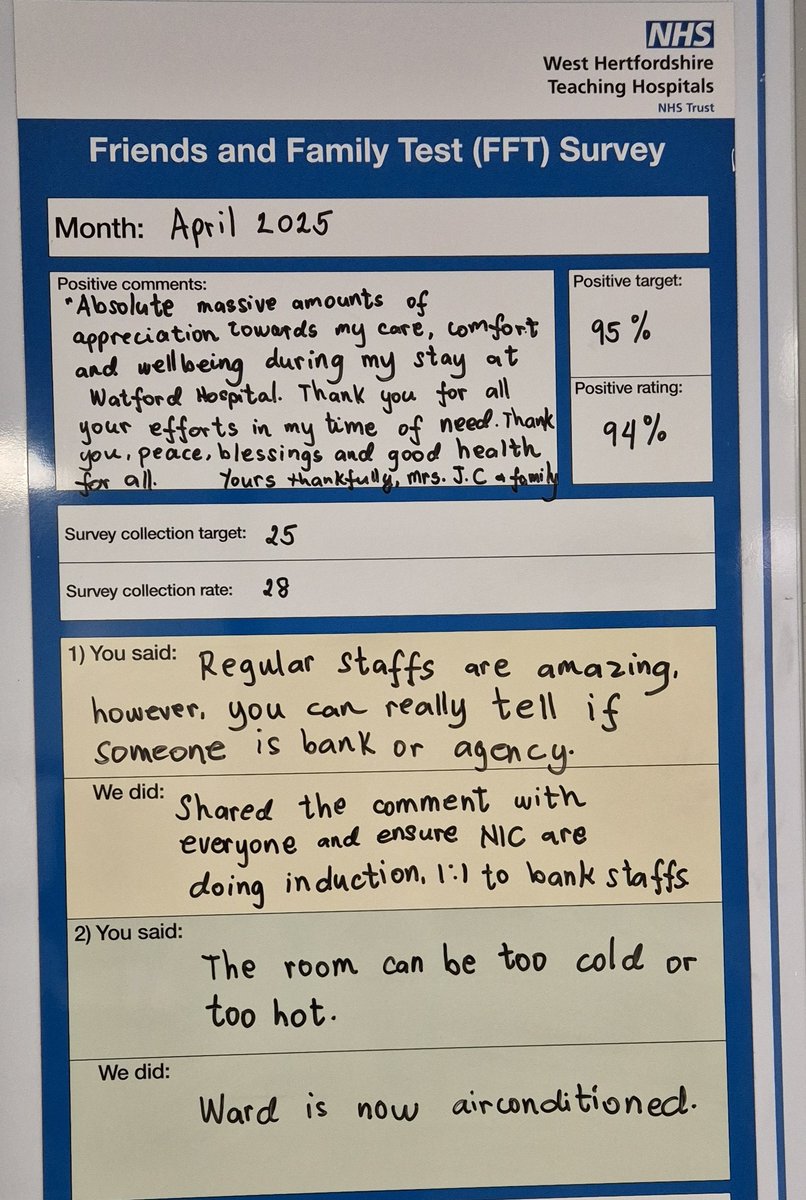 NHS
West Hertfordshire
Teaching Hospitals
NHS Trust
Friends and Family Test (FFT) Survey
Month: April 2025
Positive comments:
"Absolute massive amounts of
appreciation towards my care, comfort
and wellbeing during my stay at
Watford Hospital. Thank you for all
your efforts in my time of need. Thank
you, peace, blessings and good health
for all. Yours thankfully, Mrs. J.C & family
Positive target:
95%
Positive rating:
94%
Survey collection target: 25
Survey collection rate: 28
1) You said: Regular staffs are amazing,
however, you can really tell if
someone is bank or agency.
We did: Shared the comment with
everyone and ensure NIC are
doing induction, 1:1 to bank staffs
2) You said:
The room can be too cold or
too hot.
We did:
Ward is now airconditioned.